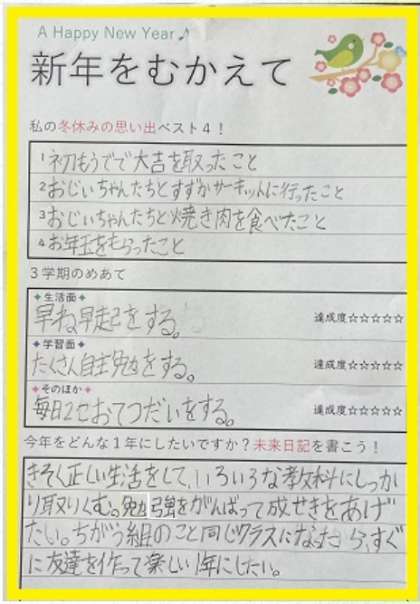 A Happy New Year♪
新年をむかえて
私の冬休みの思い出ベスト4!
1 初もうでで大吉を取ったこと
2 おじいちゃんたちとすずかサーキットに行ったこと
3 おじいちゃんたちと焼き肉を食べたこと
4 お年玉をもらったこと
3学期のめあて
✦生活面✦
早ね早起をする。
達成度☆☆☆☆☆
✦学習面✦
たくさん自主勉をする。
達成度☆☆☆☆☆
✦そのほか✦
毎日2こおてつだいをする。
達成度☆☆☆☆☆
今年をどんな1年にしたいですか?未来日記を書こう!
きそく正しい生活をして、いろいろな教科にしっか
り取りくむ。勉強をがんばって成せきをあげ
たい。ちがう組のこと同じクラスになったら、すぐ
に友達を作って楽しい1年にしたい。